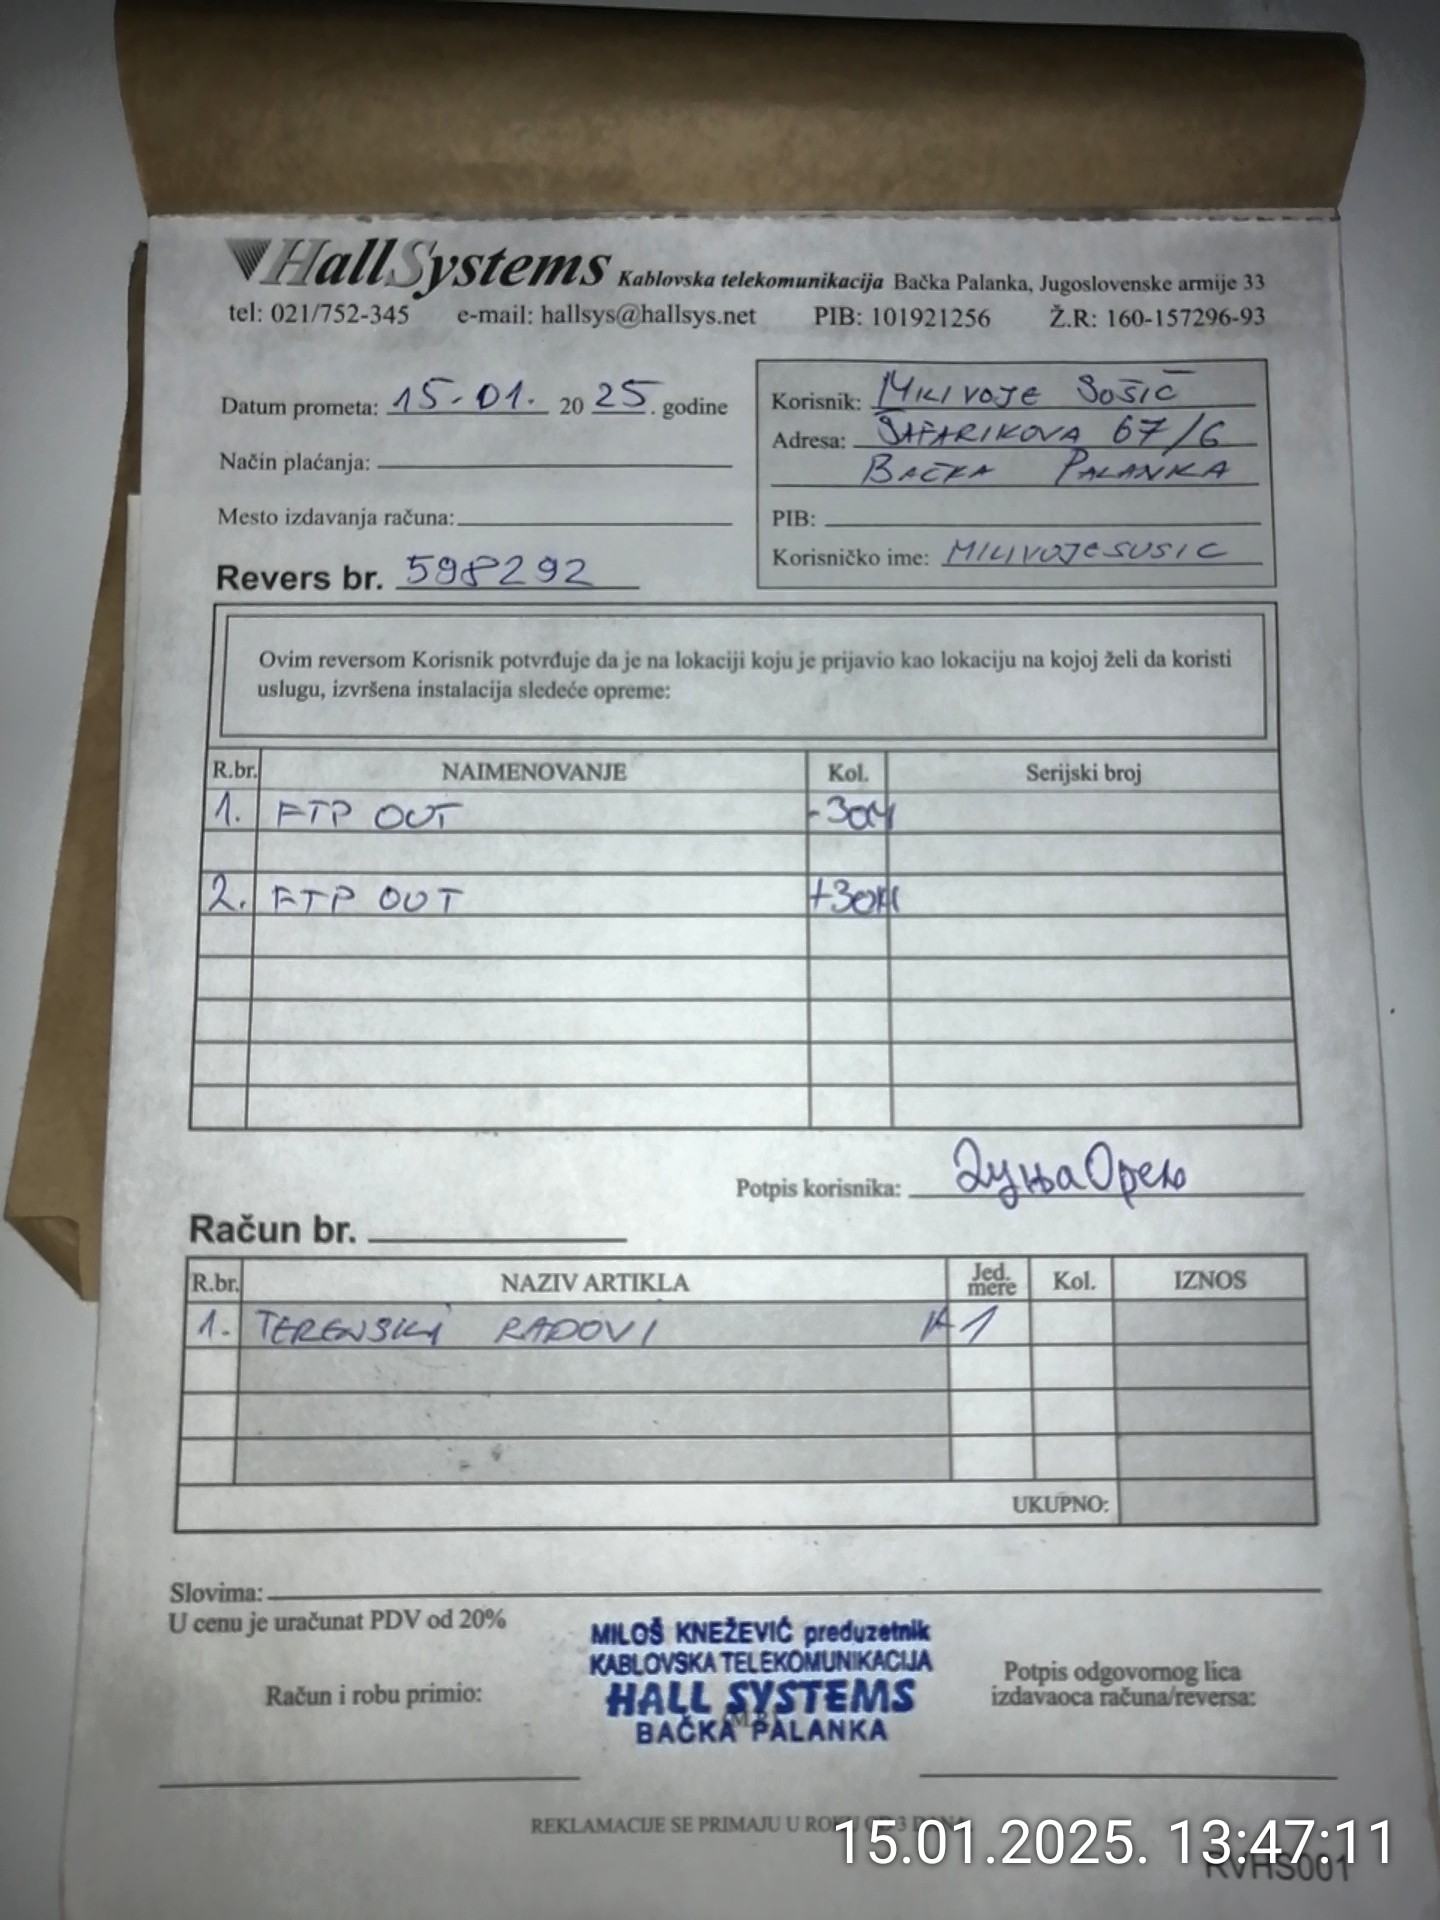 HallSystems Kablovska telekomunikacija Bačka Palanka, Jugoslovenske armije 33
tel: 021/752-345 e-mail: hallsys@hallsys.net PIB: 101921256 Ž.R: 160-157296-93
Datum prometa: 15.01. 2025. godine
Način plaćanja:
Mesto izdavanja računa:
Revers br. 598292
Korisnik: MILIVOJE ŠOŠIĆ
Adresa: ŠAFARIKOVA 67/6
BAČKA PALANKA
PIB:
Korisničko ime: MILIVOJESUSIC
Ovim reversom Korisnik potvrđuje da je na lokaciji koju je prijavio kao lokaciju na kojoj želi da koristi
uslugu, izvršena instalacija sledeće opreme:
R.br. NAIMENOVANJE Kol. Serijski broj
1. FTP OUT -30M
2. FTP OUT +30M
Potpis korisnika:
Račun br.
R.br. NAZIV ARTIKLA Jed. mere Kol. IZNOS
1. TERENSKI RADOVI 1
UKUPNO:
Slovima:
U cenu je uračunat PDV od 20%
Račun i robu primio:
MILOŠ KNEŽEVIĆ preduzetnik
KABLOVSKA TELEKOMUNIKACIJA
HALL SYSTEMS
BAČKA PALANKA
Potpis odgovornog lica
izdavaoca računa/reversa:
REKLAMACIJE SE PRIMAJU U ROKU OD 3 DANA
15.01.2025. 13:47:11
RVHS001